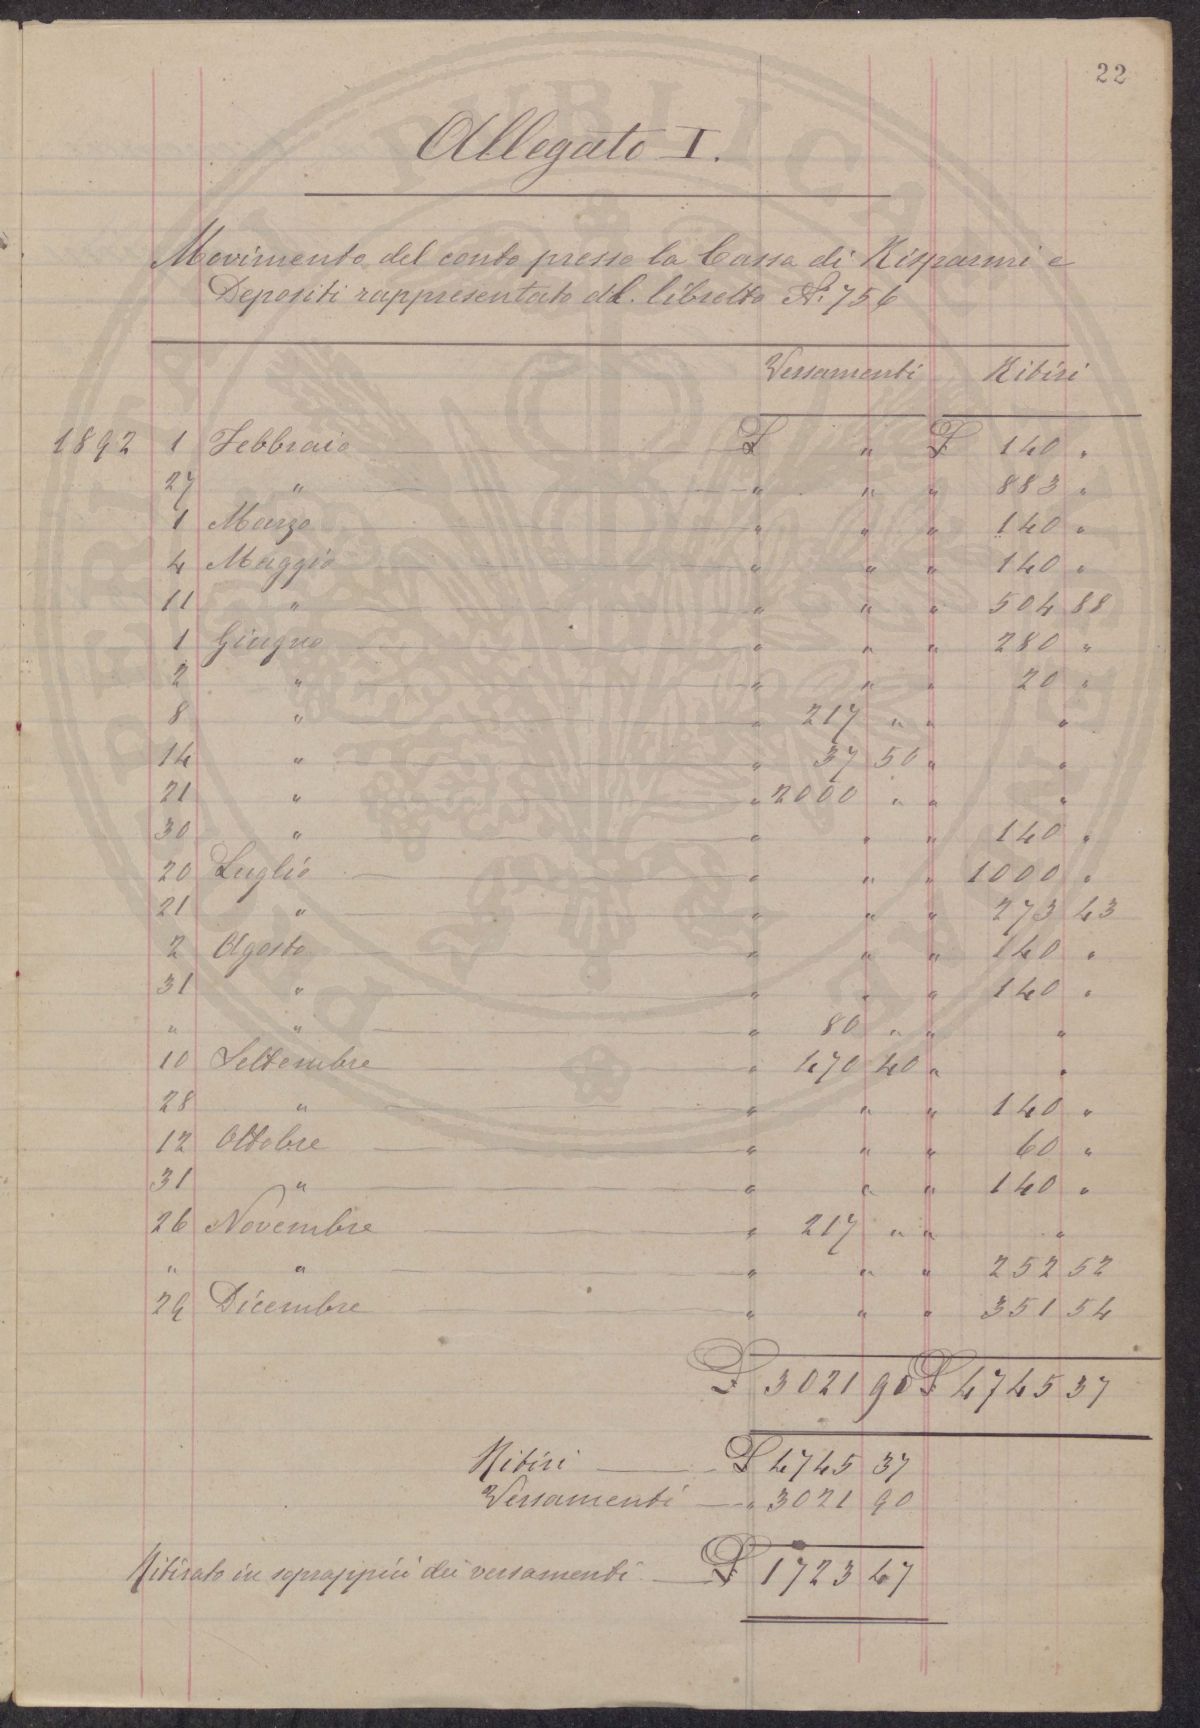 22
Allegato I.
Movimento del conto presso la Cassa di Risparmi e
Depositi rappresentato dal libretto N. 756
Versamenti Ritiri
1892 1 Febbraio £ " £ 140 "
27 " " " " 883 "
1 Marzo " " " 140 "
4 Maggio " " " 140 "
11 " " " " 504 88
1 Giugno " " " 280 "
2 " " " " 20 "
8 " " 217 " " "
14 " " 37 50 " "
21 " " 2000 " " "
30 " " " " 140 "
20 Luglio " " " 1000 "
21 " " " " 273 43
2 Agosto " " " 140 "
31 " " " " 140 "
" " " 80 " " "
10 Settembre " 470 40 " "
28 " " " " 140 "
12 Ottobre " " " 60 "
31 " " " " 140 "
26 Novembre " 217 " " "
" " " " " 252 52
29 Dicembre " " " 351 54
£ 3021 90 £ 4745 37
Ritiri £ 4745 37
Versamenti " 3021 90
Ritirato in soprappiù dei versamenti £ 1723 47